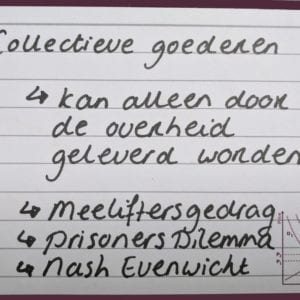 Collectieve goederen
↳ kan alleen door
de overheid
geleverd worden
↳ Meeliftersgedrag
↳ prisoners Dilemma
↳ Nash Evenwicht